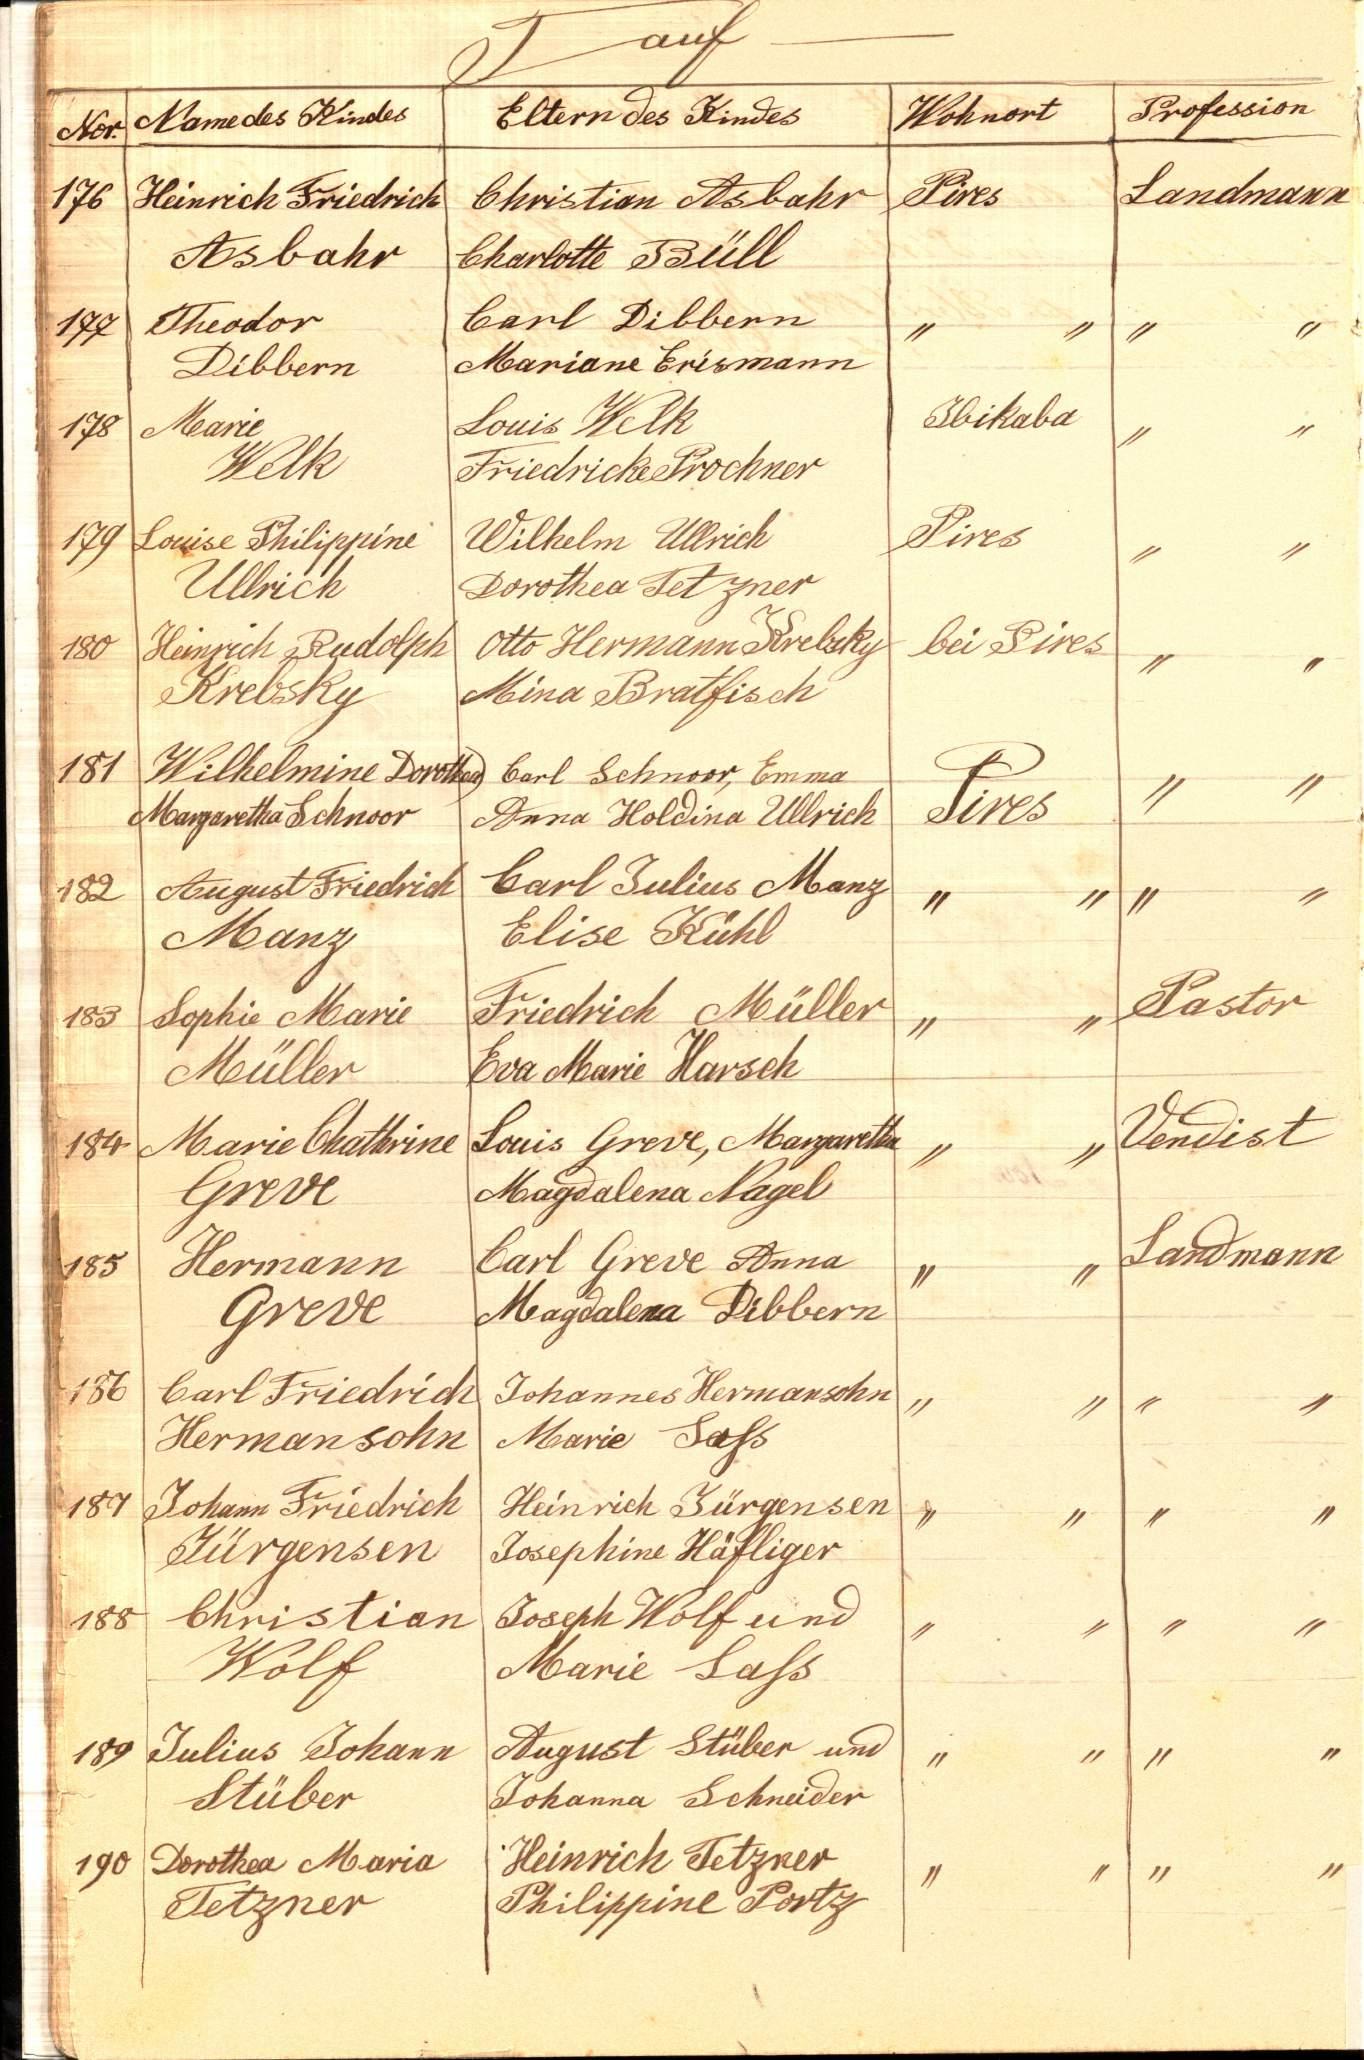 Tauf
Nor. Name des Kindes Eltern des Kindes Wohnort Profession
176 Heinrich Friedrich Christian Asbahr Pires Landmann
Asbahr Charlotte Büll
177 Theodor Carl Dibbern " " " "
Dibbern Mariane Erismann
178 Marie Louis Welk Ibikaba " "
Welk Friedricke Prochner
179 Louise Philippine Wilhelm Ullrich Pires " "
Ullrich Dorothea Tetzner
180 Heinrich Rudolph Otto Hermann Krebsky bei Pires " "
Krebsky Mina Bratfisch
181 Wilhelmine Dorothea Carl Schnoor, Emma Pires " "
Margaretha Schnoor Anna Holdina Ullrich
182 August Friedrich Carl Julius Manz " " " "
Manz Elise Kühl
183 Sophie Marie Friedrich Müller " " Pastor
Müller Eva Marie Harsch
184 Marie Chathrine Louis Greve, Margaretha " " Vendist
Greve Magdalena Nagel
185 Hermann Carl Greve Anna " " Landmann
Greve Magdalena Dibbern
186 Carl Friedrich Johannes Hermansohn " " " "
Hermansohn Marie Saſs
187 Johann Friedrich Heinrich Jürgensen " " " "
Jürgensen Josephine Häfliger
188 Christian Joseph Wolf und " " " "
Wolf Marie Laſs
189 Julius Johann August Stüber und " " " "
Stüber Johanna Schneider
190 Dorothea Maria Heinrich Tetzner " " " "
Tetzner Philippine Portz